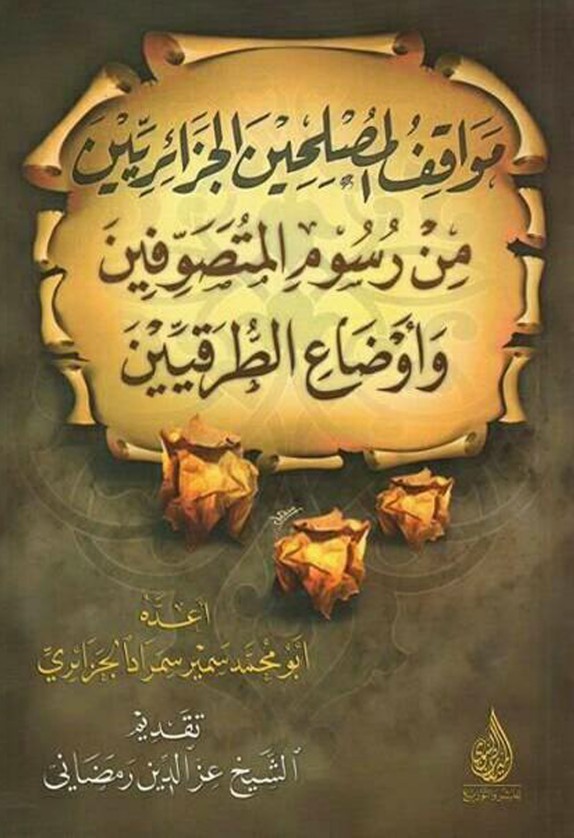 مَوَاقِفُ الْمُصْلِحِيْنَ الْجَزَائِرِيِّيْنَ
مِنْ رُسُومِ الْمُتَصَوِّفِينَ
وَأَوْضَاعِ الطُّرُقِيِّيْنَ
أعدَّهُ
أبو محمَّد سمير سمراد الجزائري
تقديم
الشيخ عز الدين رمضاني
للنشر والتوزيع